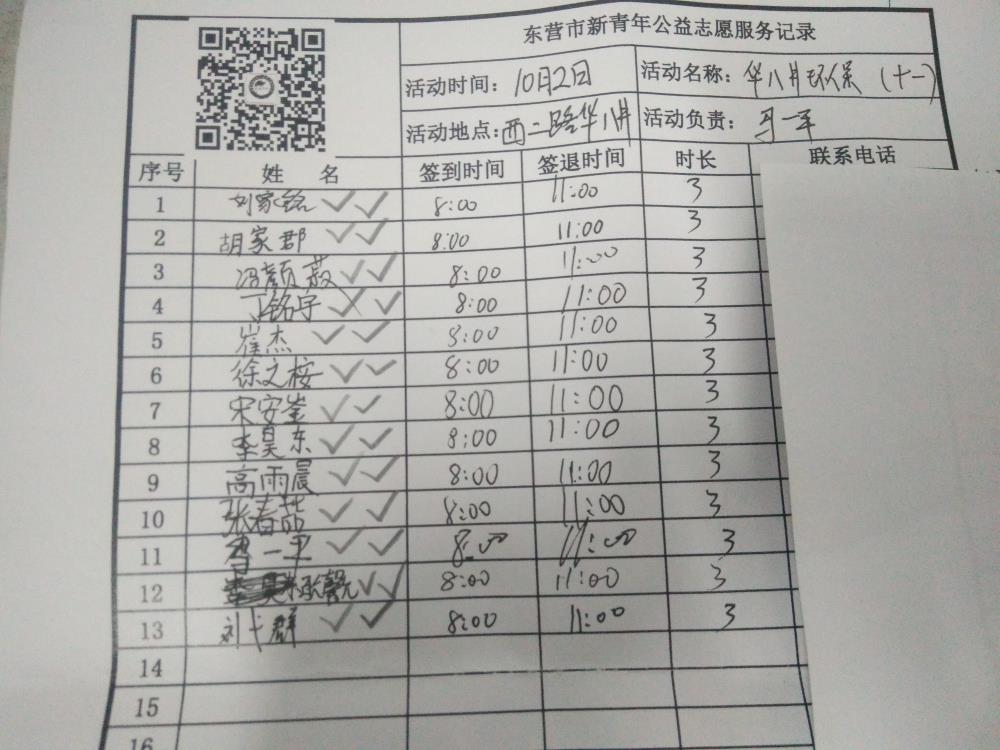 东营市新青年公益志愿服务记录
活动时间: 10月2日 活动名称: 华八井环保（十一）
活动地点: 西二路华八井 活动负责:
序号 姓 名 签到时间 签退时间 时长 联系电话
1 刘家铭 8:00 11:00 3
2 胡家郡 8:00 11:00 3
3 冯颜菽 8:00 11:00 3
4 丁铭宇 8:00 11:00 3
5 崔杰 8:00 11:00 3
6 徐文桉 8:00 11:00 3
7 宋安崟 8:00 11:00 3
8 李昊东 8:00 11:00 3
9 高雨晨 8:00 11:00 3
10 张春喆 8:00 11:00 3
11 8:00 11:00 3
12 8:00 11:00 3
13 刘弋群 8:00 11:00 3
14
15
16